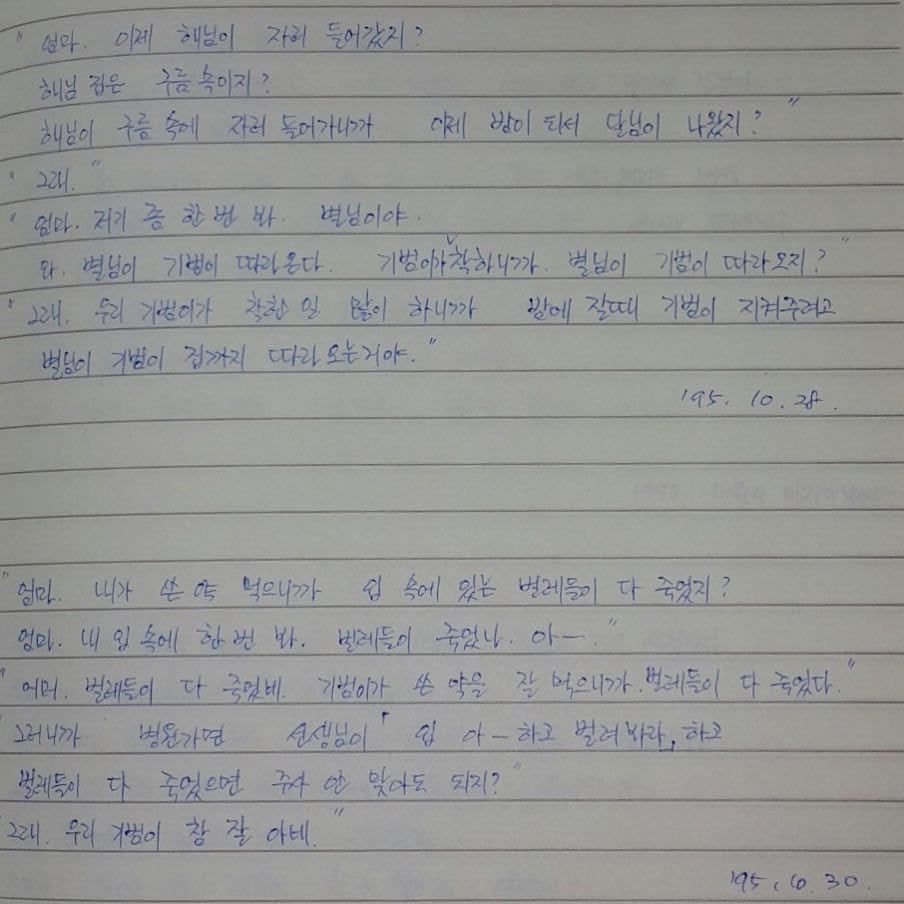 " 엄마. 이제 해님이 자러 들어갔지?
해님 집은 구름 속이지?
해님이 구름 속에 자러 들어가니까 이제 밤이 되서 달님이 나왔지? "
" 그래. "
" 엄마. 저기 좀 한 번 봐. 별님이야.
와. 별님이 기범이 따라온다. 기범이가 착하니까. 별님이 기범이 따라오지? "
" 그래. 우리 기범이가 착한 일 많이 하니까 밤에 잘때 기범이 지켜주려고
별님이 기범이 집까지 따라 오는거야. "
'95. 10. 28.
" 엄마. 내가 쓴 약 먹으니까 입 속에 있는 벌레들이 다 죽었지?
엄마. 내 입 속에 한 번 봐. 벌레들이 죽었나. 아ㅡ. "
" 어머. 벌레들이 다 죽었네. 기범이가 쓴 약을 잘 먹으니까 벌레들이 다 죽었다. "
" 그러니까 병원가면 선생님이 ' 입 아ㅡ하고 벌려봐라, 하고
벌레들이 다 죽었으면 주사 안 맞아도 되지? "
그래. 우리 기범이 참 잘 아네. "
'95. 10. 30.